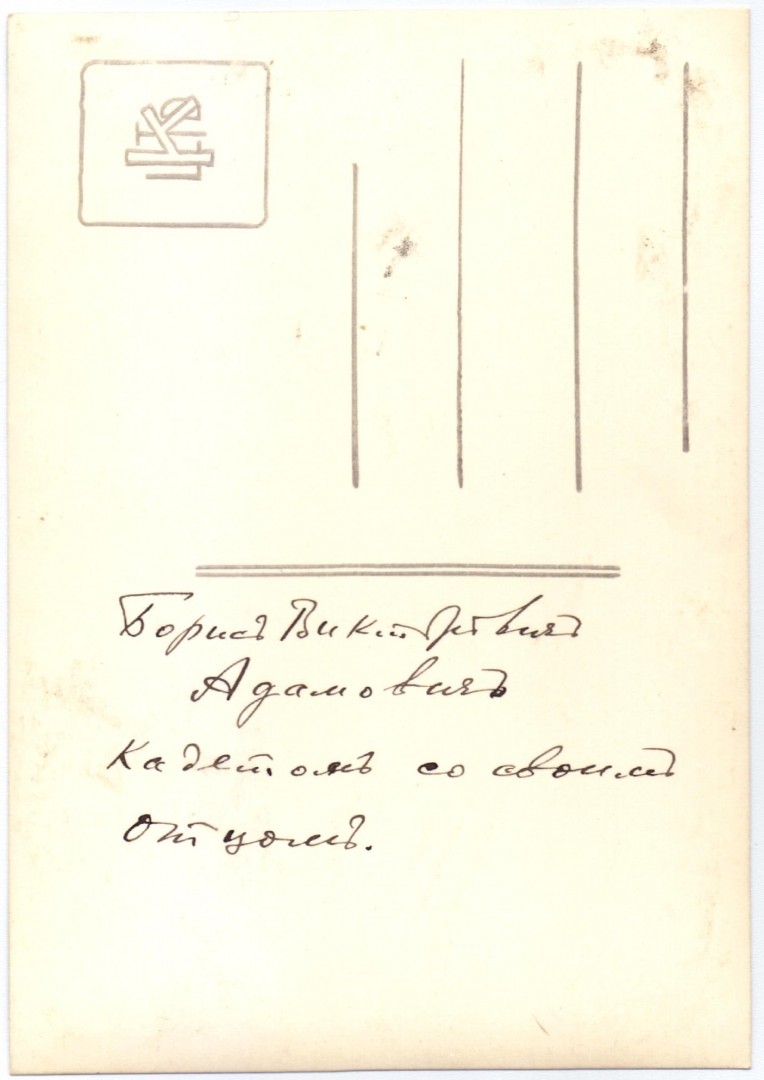 Борисъ Викторовичъ
Адамовичъ
кадетомъ со своимъ
отцомъ.